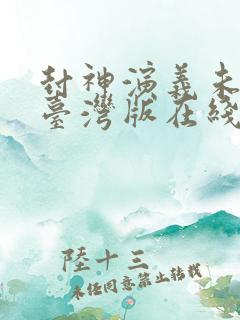 封神演義未
臺灣版在綫
陸十三
未經同意禁止轉載